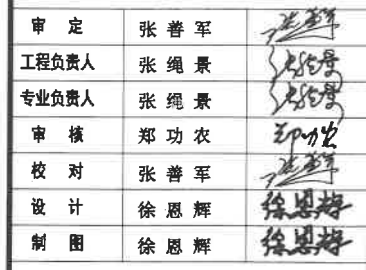 审 定 张 善 军 张善军
工程负责人 张 绳 景 张绳景
专业负责人 张 绳 景 张绳景
审 核 郑 功 农 郑功农
校 对 张 善 军 张善军
设 计 徐 恩 辉 徐恩辉
制 图 徐 恩 辉 徐恩辉